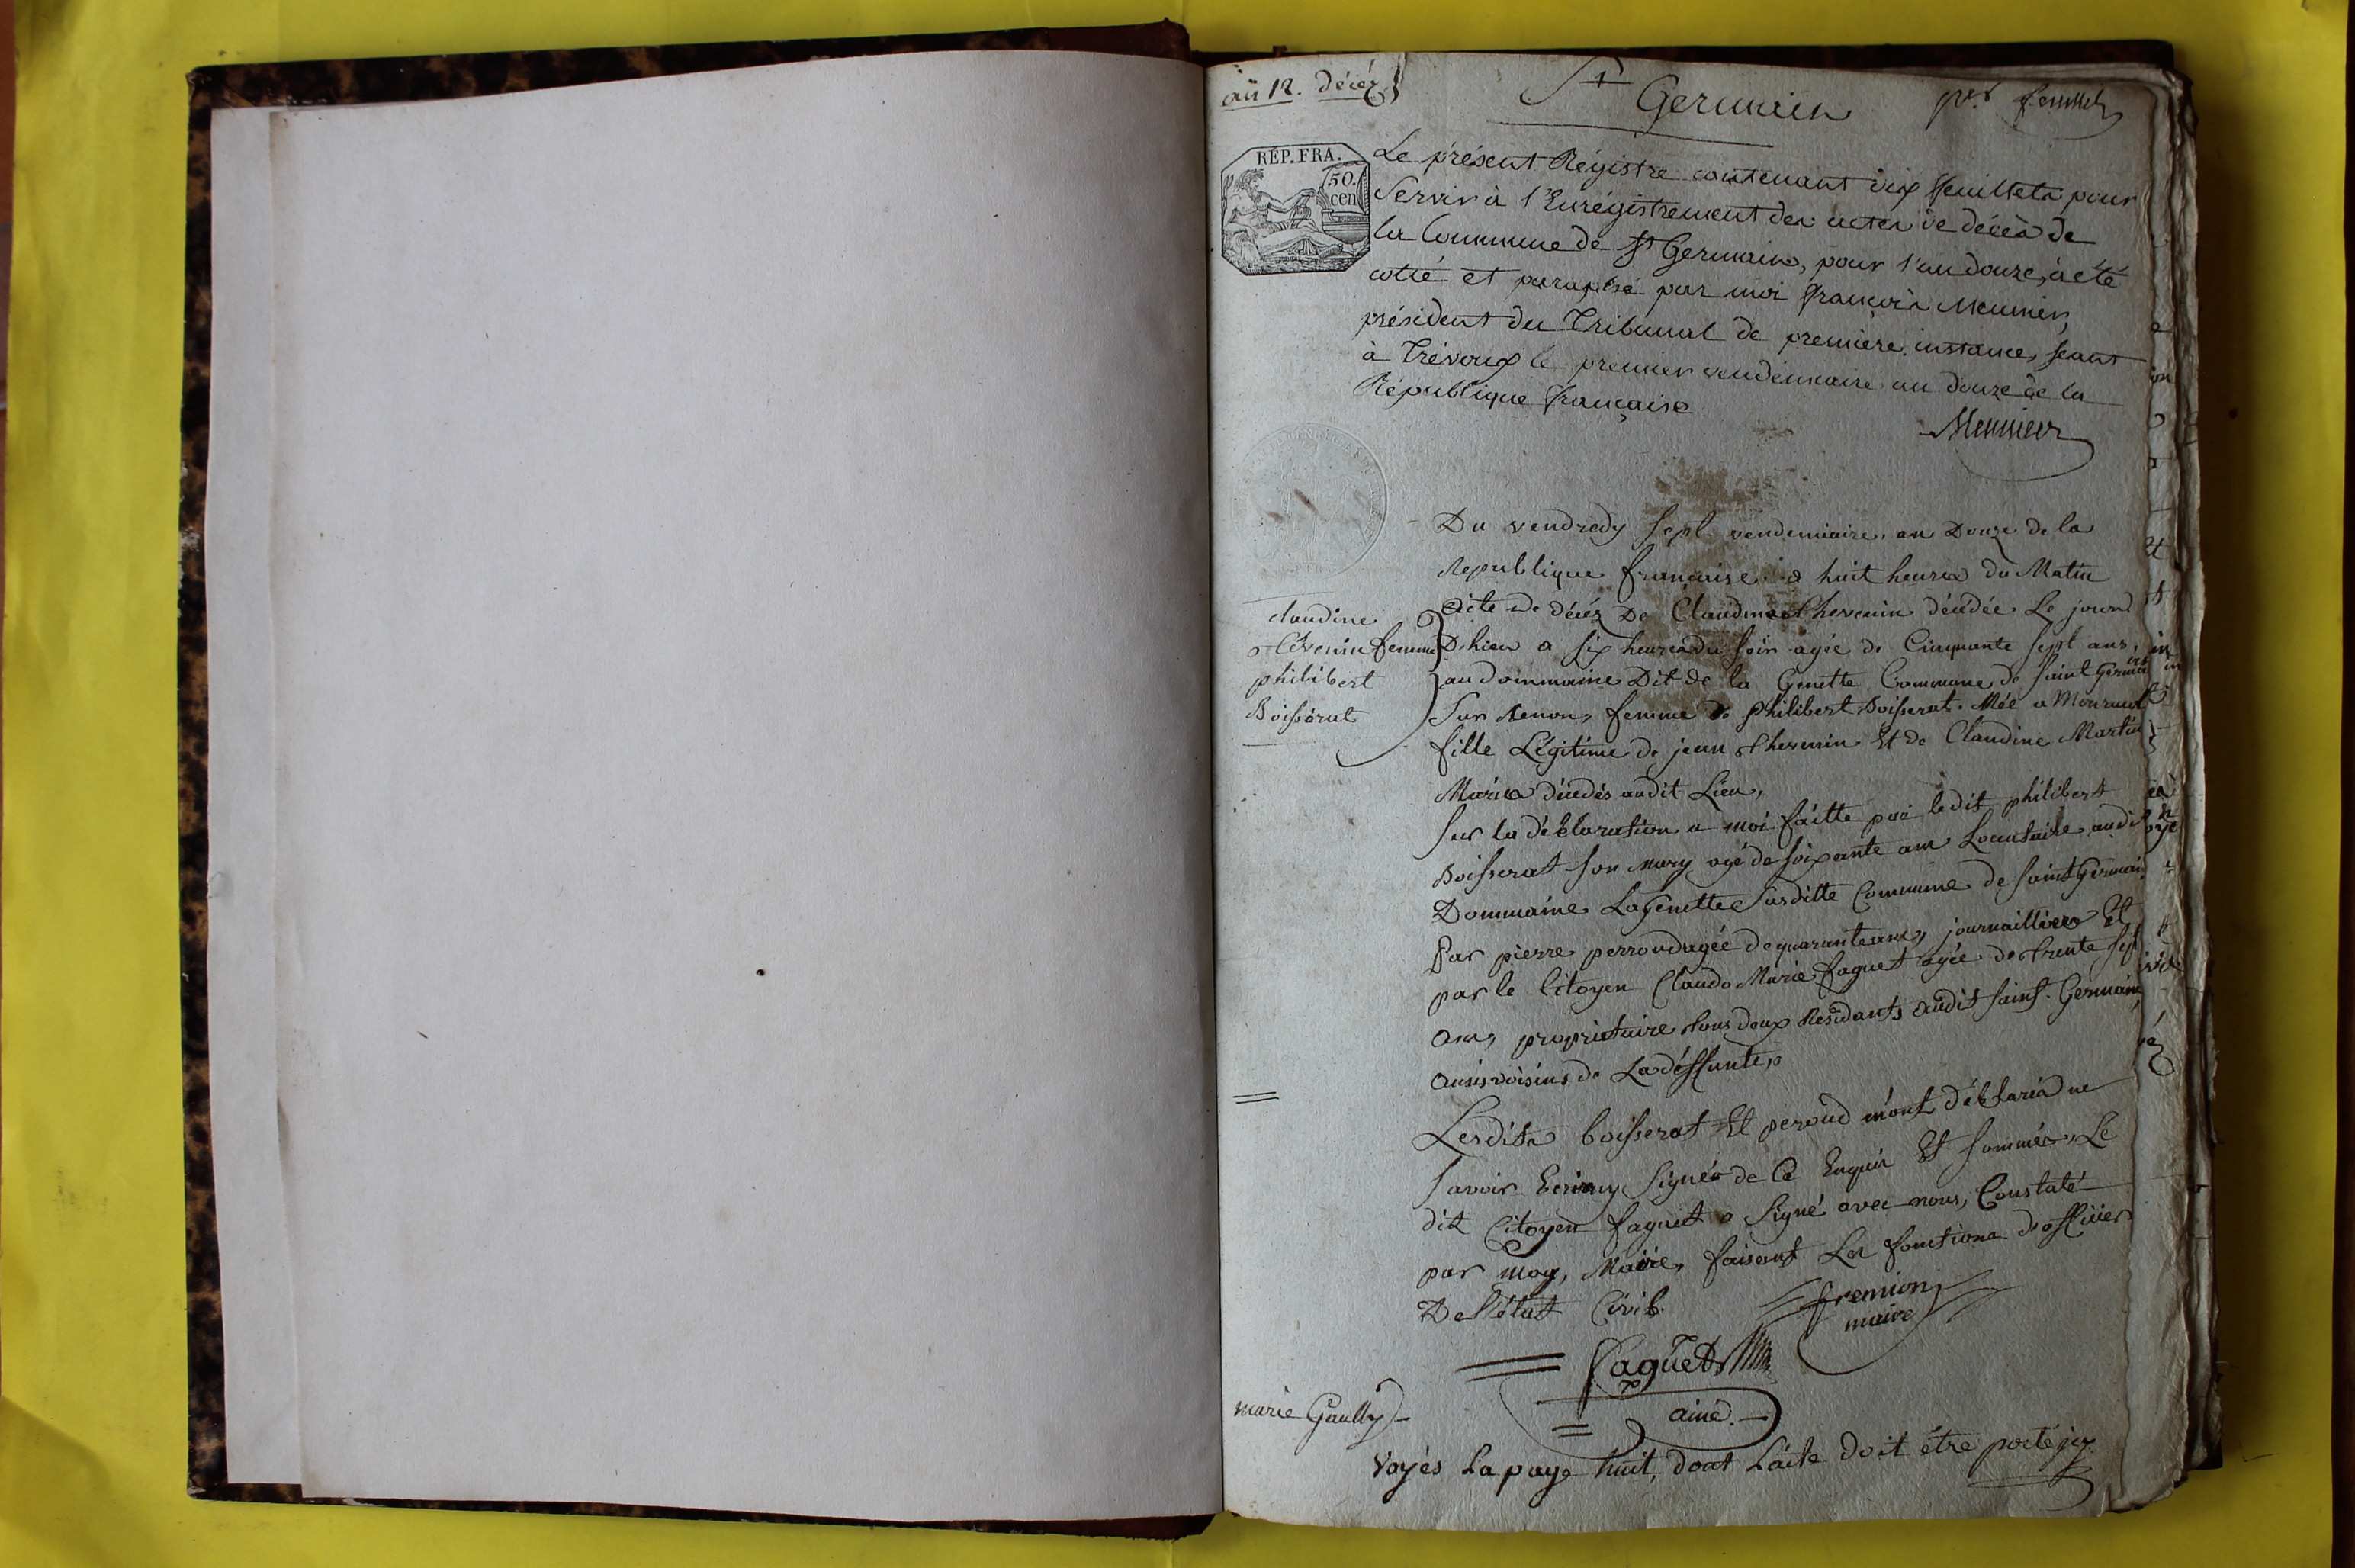 an 12. décéz
St Germain
per feuillet
RÉP. FRA.
50.
cen
Le présent Régistre contenant dix feuillets pour
Servir à l'Enrégistrement des actes de décès de
la Commune de St Germain, pour l'an douze, à été
cotté et paraphé par moi françois Meunier,
président du Tribunal de premiere instance, séant
à Trévoux le premier vendemiaire an douze de la
République française
Meunier
Du vendredy sept vendemiaire an Douze de la
Republique française a huit heures du Matin
acte de décéz De Claudine thevenin décédée Le jour
D'hier a six heures du soir agée de Cinquante sept ans,
au dommaine Dit de la Genette Commune de Saint Germain
Sur Renon, femme de philibert Boisserat. Née a
fille Légitime de jean thevenin Et de Claudine Martin
Mariés décédés audit Lieu,
claudine
thévenin femme
philibert
Boisserat
Sur la déclaration a moi faitte par ledit philibert
Boisserat son mary agé de soixante ans Locataire audit
Dommaine La Genette Susditte Commune de Saint Germain
Par pierre perroud agée de quarante ans, journaillier Et
par le Citoyen Claude Marie faguet agée de trente sept
ans, proprietaire tous deux Residants audit Saint Germain
amis voisins de La déffunte,
Lesdits boisserat Et peroud m'ont déclarés ne
savoir Ecrire ny Signer de Ce Enquis Et sommés, Le
dit Citoyen faguet a Signé avec nous, Constaté
par moy, Maire, faisant Les fonctions d'officier
De l'état Civil.
fremion
maire
faguet
ainé.
marie Gaully
Voyés La page huit, dont L'acte doit être porté icy